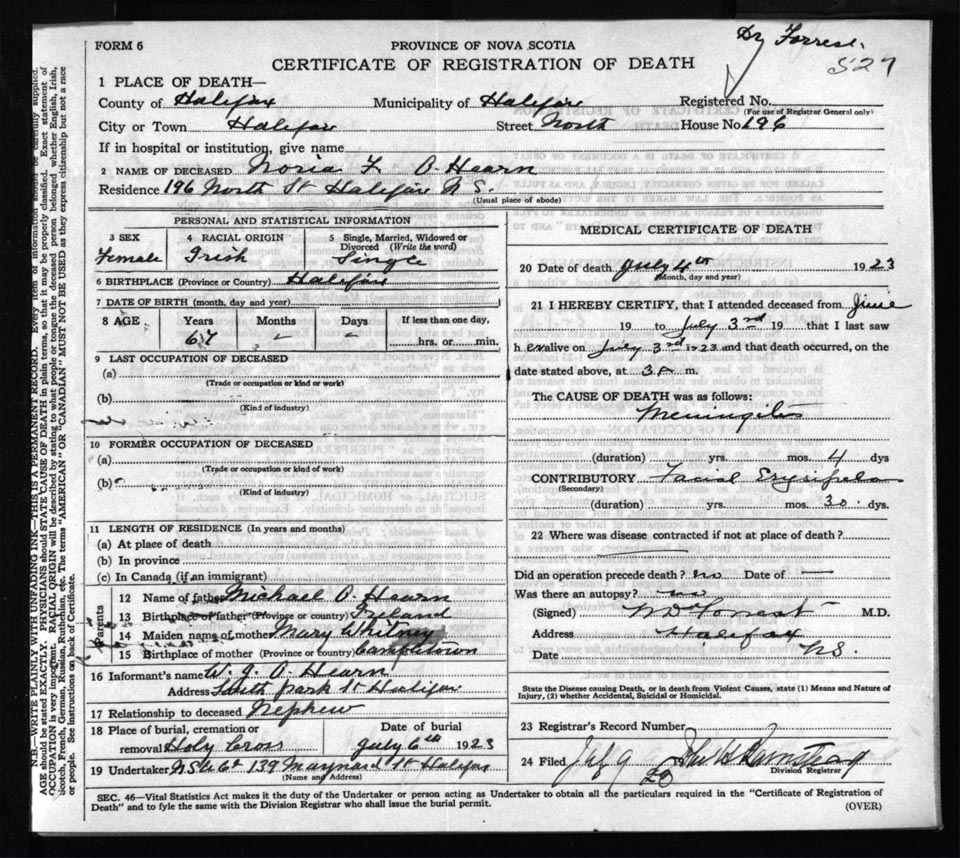 Dr Forrest.
527
FORM 6
PROVINCE OF NOVA SCOTIA
CERTIFICATE OF REGISTRATION OF DEATH
1 PLACE OF DEATH—
County of Halifax Municipality of Halifax Registered No.
(For use of Registrar General only)
City or Town Halifax Street North House No 196
If in hospital or institution, give name
2 NAME OF DECEASED Nora F. O'Hearn
Residence 196 North St Halifax N S.
(Usual place of abode)
PERSONAL AND STATISTICAL INFORMATION
3 SEX 4 RACIAL ORIGIN 5 Single, Married, Widowed or Divorced (Write the word)
Female Irish Single
6 BIRTHPLACE (Province or Country) Halifax
7 DATE OF BIRTH (month, day and year)
8 AGE Years Months Days If less than one day,
67 – – hrs. or min.
9 LAST OCCUPATION OF DECEASED
(a)
(Trade or occupation or kind or work)
(b)
(Kind of industry)
10 FORMER OCCUPATION OF DECEASED
(a)
(Trade or occupation or kind or work)
(b)
(Kind of industry)
11 LENGTH OF RESIDENCE (In years and months)
(a) At place of death
(b) In province
(c) In Canada (if an immigrant)
Parents
12 Name of father Michael O'Hearn
13 Birthplace of father (Province or country) Ireland
14 Maiden name of mother Mary Whitney
15 Birthplace of mother (Province or country) Campletown
16 Informant's name W. J. O'Hearn
Address South park St Halifax
17 Relationship to deceased Nephew
18 Place of burial, cremation or removal Holy Cross Date of burial July 6th 1923
19 Undertaker 139 Maynard St Halifax
(Name and Address)
MEDICAL CERTIFICATE OF DEATH
20 Date of death July 4th 1923
(Month, day and year)
21 I HEREBY CERTIFY, that I attended deceased from June
19 to July 3rd 19 that I last saw
her alive on July 3rd 1923 and that death occurred, on the
date stated above, at 3 A m.
The CAUSE OF DEATH was as follows:
Meningitis
(duration) yrs. mos. 4 dys
CONTRIBUTORY Facial Erysipelas
(Secondary)
(duration) yrs. mos. 30 dys.
22 Where was disease contracted if not at place of death?
Did an operation precede death? no Date of —
Was there an autopsy? no
(Signed) W D Forrest M.D.
Address Halifax
Date N.S.
State the Disease causing Death, or in death from Violent Causes, state (1) Means and Nature of
Injury, (2) whether Accidental, Suicidal or Homicidal.
23 Registrar's Record Number
24 Filed July 9
Division Registrar
SEC. 46—Vital Statistics Act makes it the duty of the Undertaker or person acting as Undertaker to obtain all the particulars required in the "Certificate of Registration of
Death" and to fyle the same with the Division Registrar who shall issue the burial permit.
(OVER)
N.B.—WRITE PLAINLY, WITH UNFADING INK—THIS IS A PERMANENT RECORD. Every item of information should be carefully supplied.
AGE should be stated EXACTLY. PHYSICIANS should STATE CAUSE OF DEATH in plain terms, so that it may be properly classified. Exact statement of
OCCUPATION is very important. RACIAL ORIGIN will be described by stating to what people or tongue the deceased person belonged whether English, Irish,
Scotch, French, German, Russian, Ruthenian, etc. The terms "AMERICAN" OR "CANADIAN" MUST NOT BE USED as they express citizenship but not a race
or people. See instructions on back of Certificate.